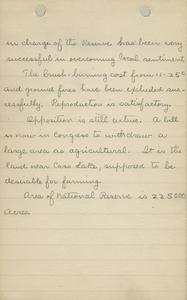 in charge of the Reserve has been very
successful in overcoming local sentiment
The brush-burning cost from 11-25¢
and ground fires have been excluded suc-
cessfully. Reproduction is satisfactory.
Opposition is still active. A bill
is now in Congress to withdraw a
large area as agricultural. It is the
land near Cass Lake, supposed to be
desirable for farming.
Area of National Reserve is 225000
Acres